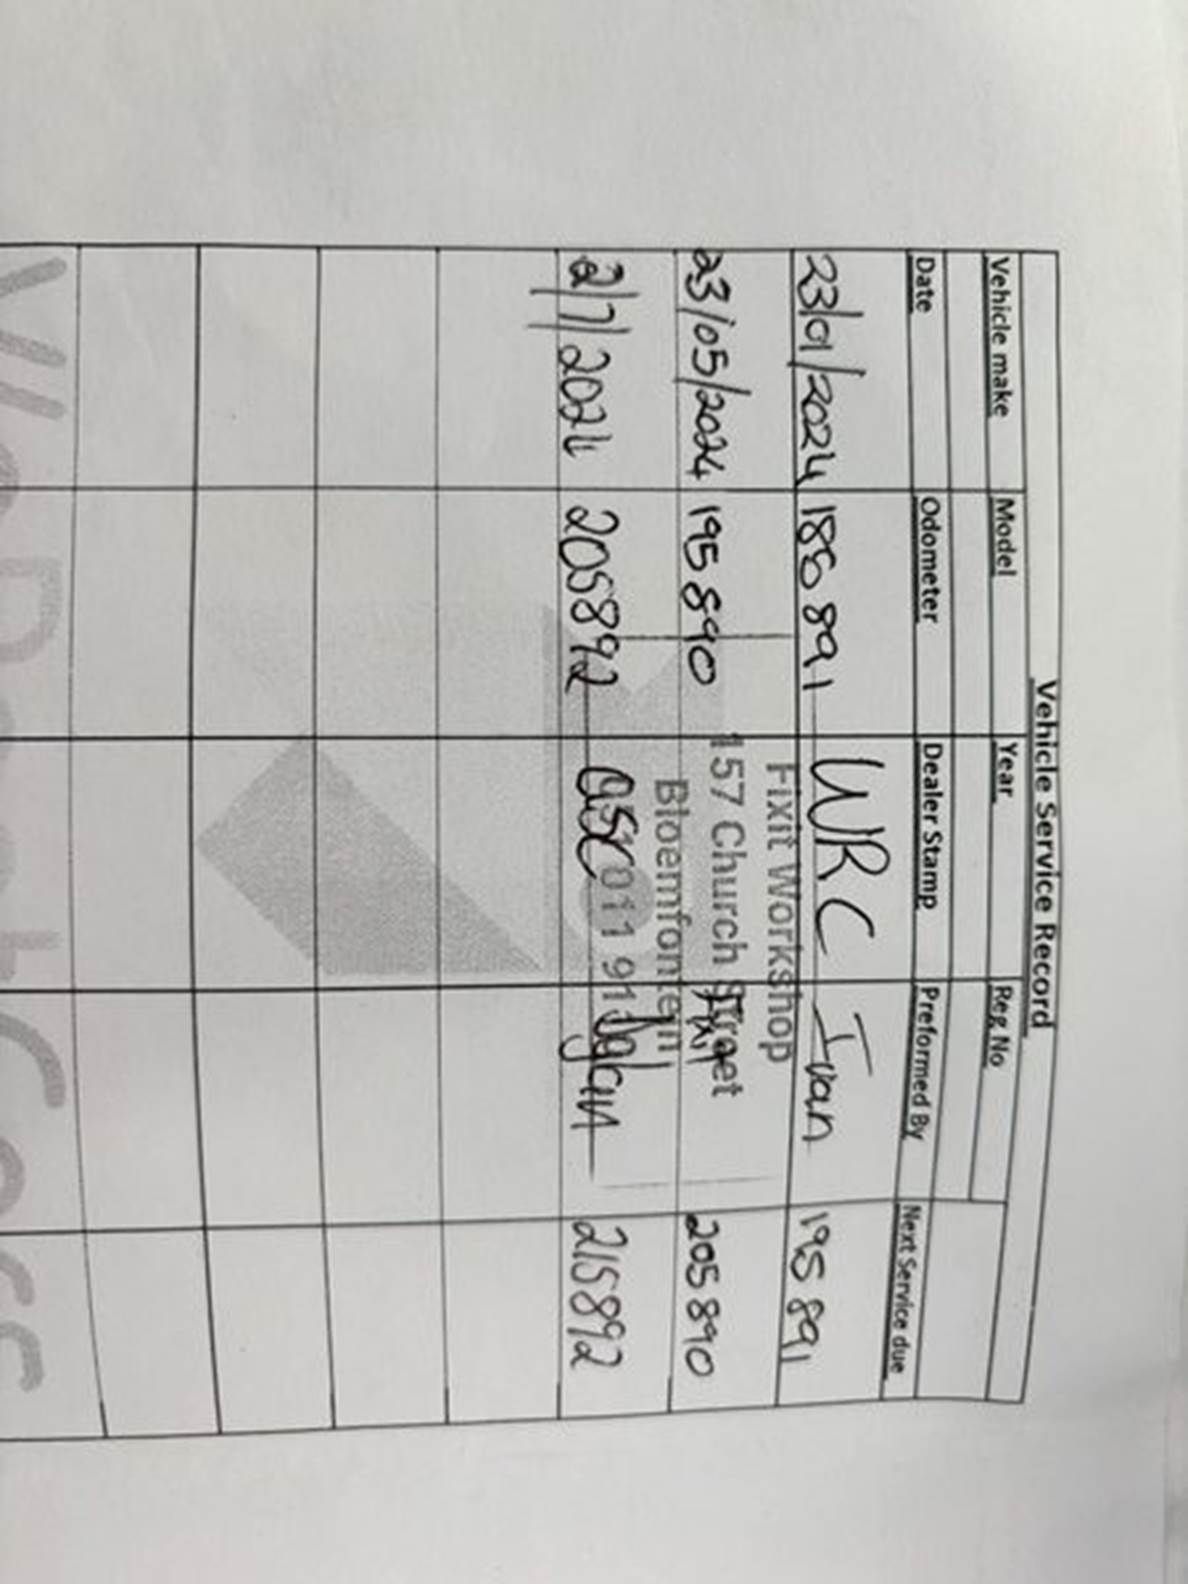 Vehicle Service Record
Vehicle make Model Year Reg No
Date Odometer Dealer Stamp Preformed By Next Service due
23/01/2024 185 891 WRC Ivan 195 891
Fixit Workshop
23/05/2024 195 890 157 Church Street 205 890
Bloemfontein
2/7/2024 205892 011 91 215892